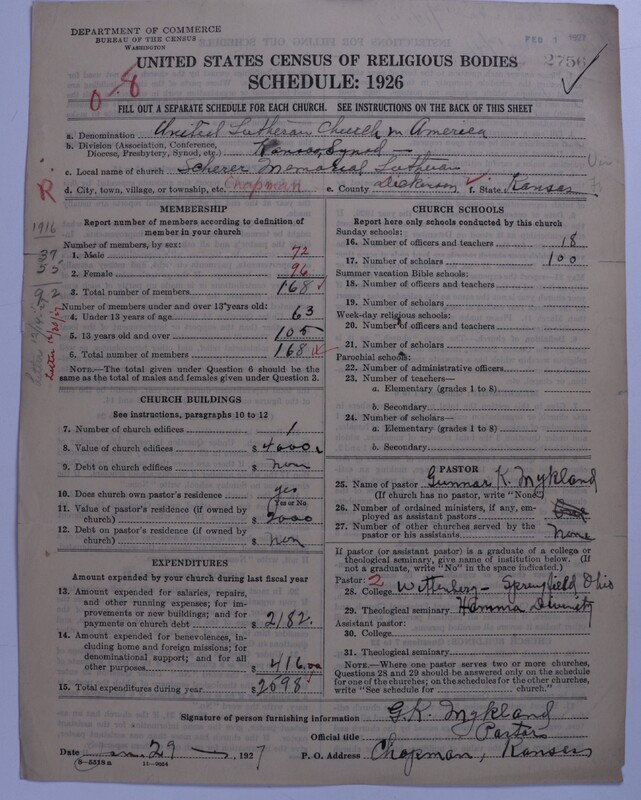 DEPARTMENT OF COMMERCE
BUREAU OF THE CENSUS
WASHINGTON
FEB 1 1927
2756
UNITED STATES CENSUS OF RELIGIOUS BODIES
SCHEDULE: 1926
0-8
FILL OUT A SEPARATE SCHEDULE FOR EACH CHURCH. SEE INSTRUCTIONS ON THE BACK OF THIS SHEET
a. Denomination United Lutheran Church in America
b. Division (Association, Conference, Diocese, Presbytery, Synod, etc.) Kansas Synod
c. Local name of church Scherer Memorial Lutheran
R
d. City, town, village, or township, etc. Chapman e. County Dickinson f. State Kansas
MEMBERSHIP
Report number of members according to definition of member in your church
1916
37
55
92
Letter 12/20/27
Number of members, by sex:
1. Male 72
2. Female 96
3. Total number of members 168
Number of members under and over 13 years old:
4. Under 13 years of age 63
5. 13 years old and over 105
6. Total number of members 168
NOTE.—The total given under Question 6 should be the same as the total of males and females given under Question 3.
CHURCH BUILDINGS
See instructions, paragraphs 10 to 12
7. Number of church edifices 1
8. Value of church edifices $ 4000
9. Debt on church edifices $ non
10. Does church own pastor's residence yes
(Yes or No)
11. Value of pastor's residence (if owned by church) $ 2000
12. Debt on pastor's residence (if owned by church) $ non
EXPENDITURES
Amount expended by your church during last fiscal year
13. Amount expended for salaries, repairs, and other running expenses; for improvements or new buildings; and for payments on church debt $ 2182.
14. Amount expended for benevolences, including home and foreign missions; for denominational support; and for all other purposes $ 416.00
15. Total expenditures during year $ 2598
CHURCH SCHOOLS
Report here only schools conducted by this church
Sunday schools:
16. Number of officers and teachers 18
17. Number of scholars 100
Summer vacation Bible schools:
18. Number of officers and teachers
19. Number of scholars
Week-day religious schools:
20. Number of officers and teachers
21. Number of scholars
Parochial schools:
22. Number of administrative officers
23. Number of teachers—
a. Elementary (grades 1 to 8)
b. Secondary
24. Number of scholars—
a. Elementary (grades 1 to 8)
b. Secondary
PASTOR
25. Name of pastor Gunnar K. Mykland
(If church has no pastor, write "None")
26. Number of ordained ministers, if any, employed as assistant pastors
27. Number of other churches served by the pastor or his assistants None
If pastor (or assistant pastor) is a graduate of a college or theological seminary, give name of institution below. (If not a graduate, write "No" in the space indicated.)
Pastor: 2
28. College Wittenberg - Springfield Ohio
29. Theological seminary Hamma Divinity
Assistant pastor:
30. College
31. Theological seminary
NOTE.—Where one pastor serves two or more churches, Questions 28 and 29 should be answered only on the schedule for one of the churches; on the schedules for the other churches, write "See schedule for church."
Signature of person furnishing information G.K. Mykland
Official title Pastor
Date Jan. 29, 1927 P. O. Address Chapman, Kansas
8-5518a 11-9054